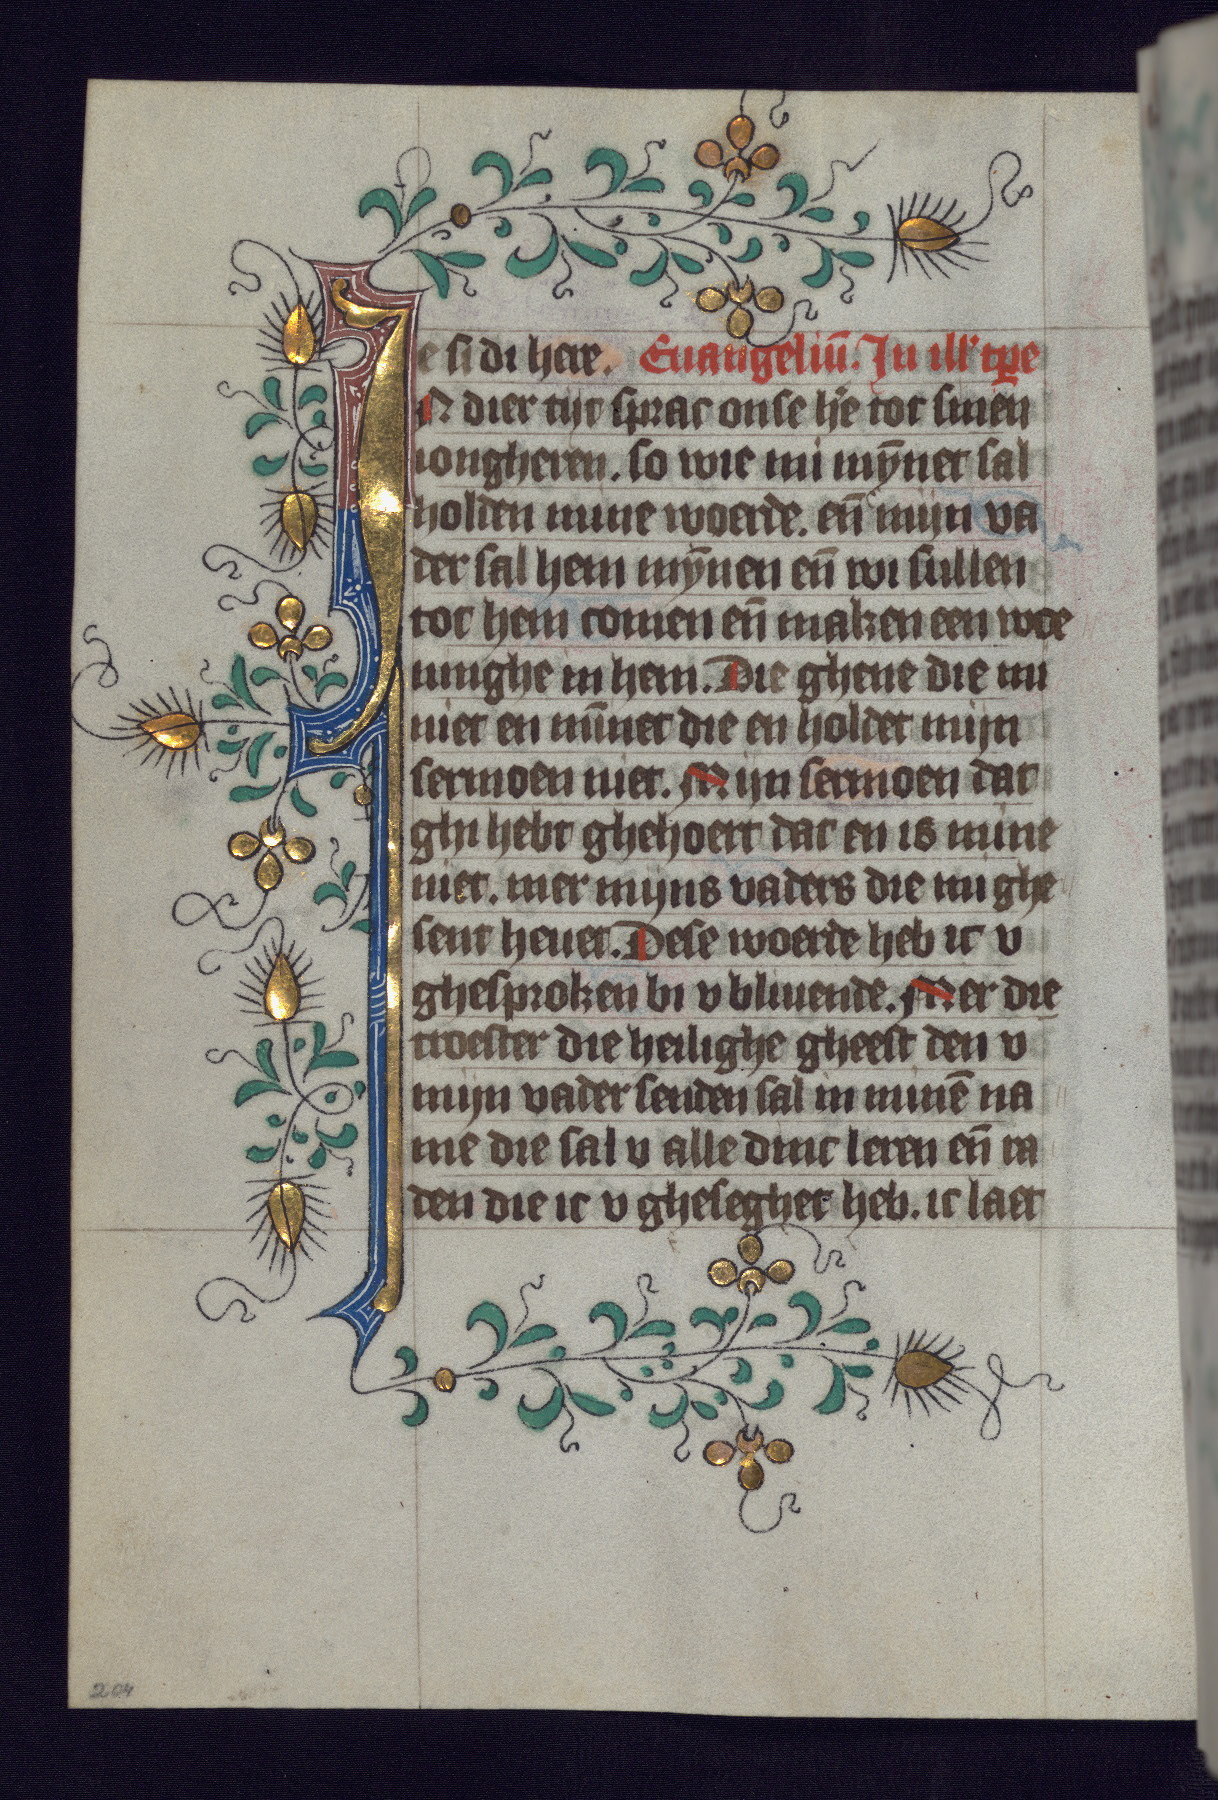 e si di here. Euangeliū. In ill' tp̄e
IN dier tijt sprac onse h̄e tot sinen
iongheren. so wie mi mȳnet sal
holden mine woerde. en̄ mijn va
der sal hem mȳnen en̄ wi sullen
tot hem comen en̄ maken een woe
ninghe in hem. Die ghene die mi
niet en mīnet die en holdet mijn
sermoen niet. Mijn sermoen dat
ghi hebt ghehoert dat en is mine
niet. mer mijns vaders die mi ghe
sent heuet. Dese woerde heb ic v
ghesproken bi v bliuende. Mer die
troester die heilighe gheest den v
mijn vader senden sal in minē na
me die sal v alle dinc leren en̄ ra
den die ic v ghesegghet heb. ic laet
204